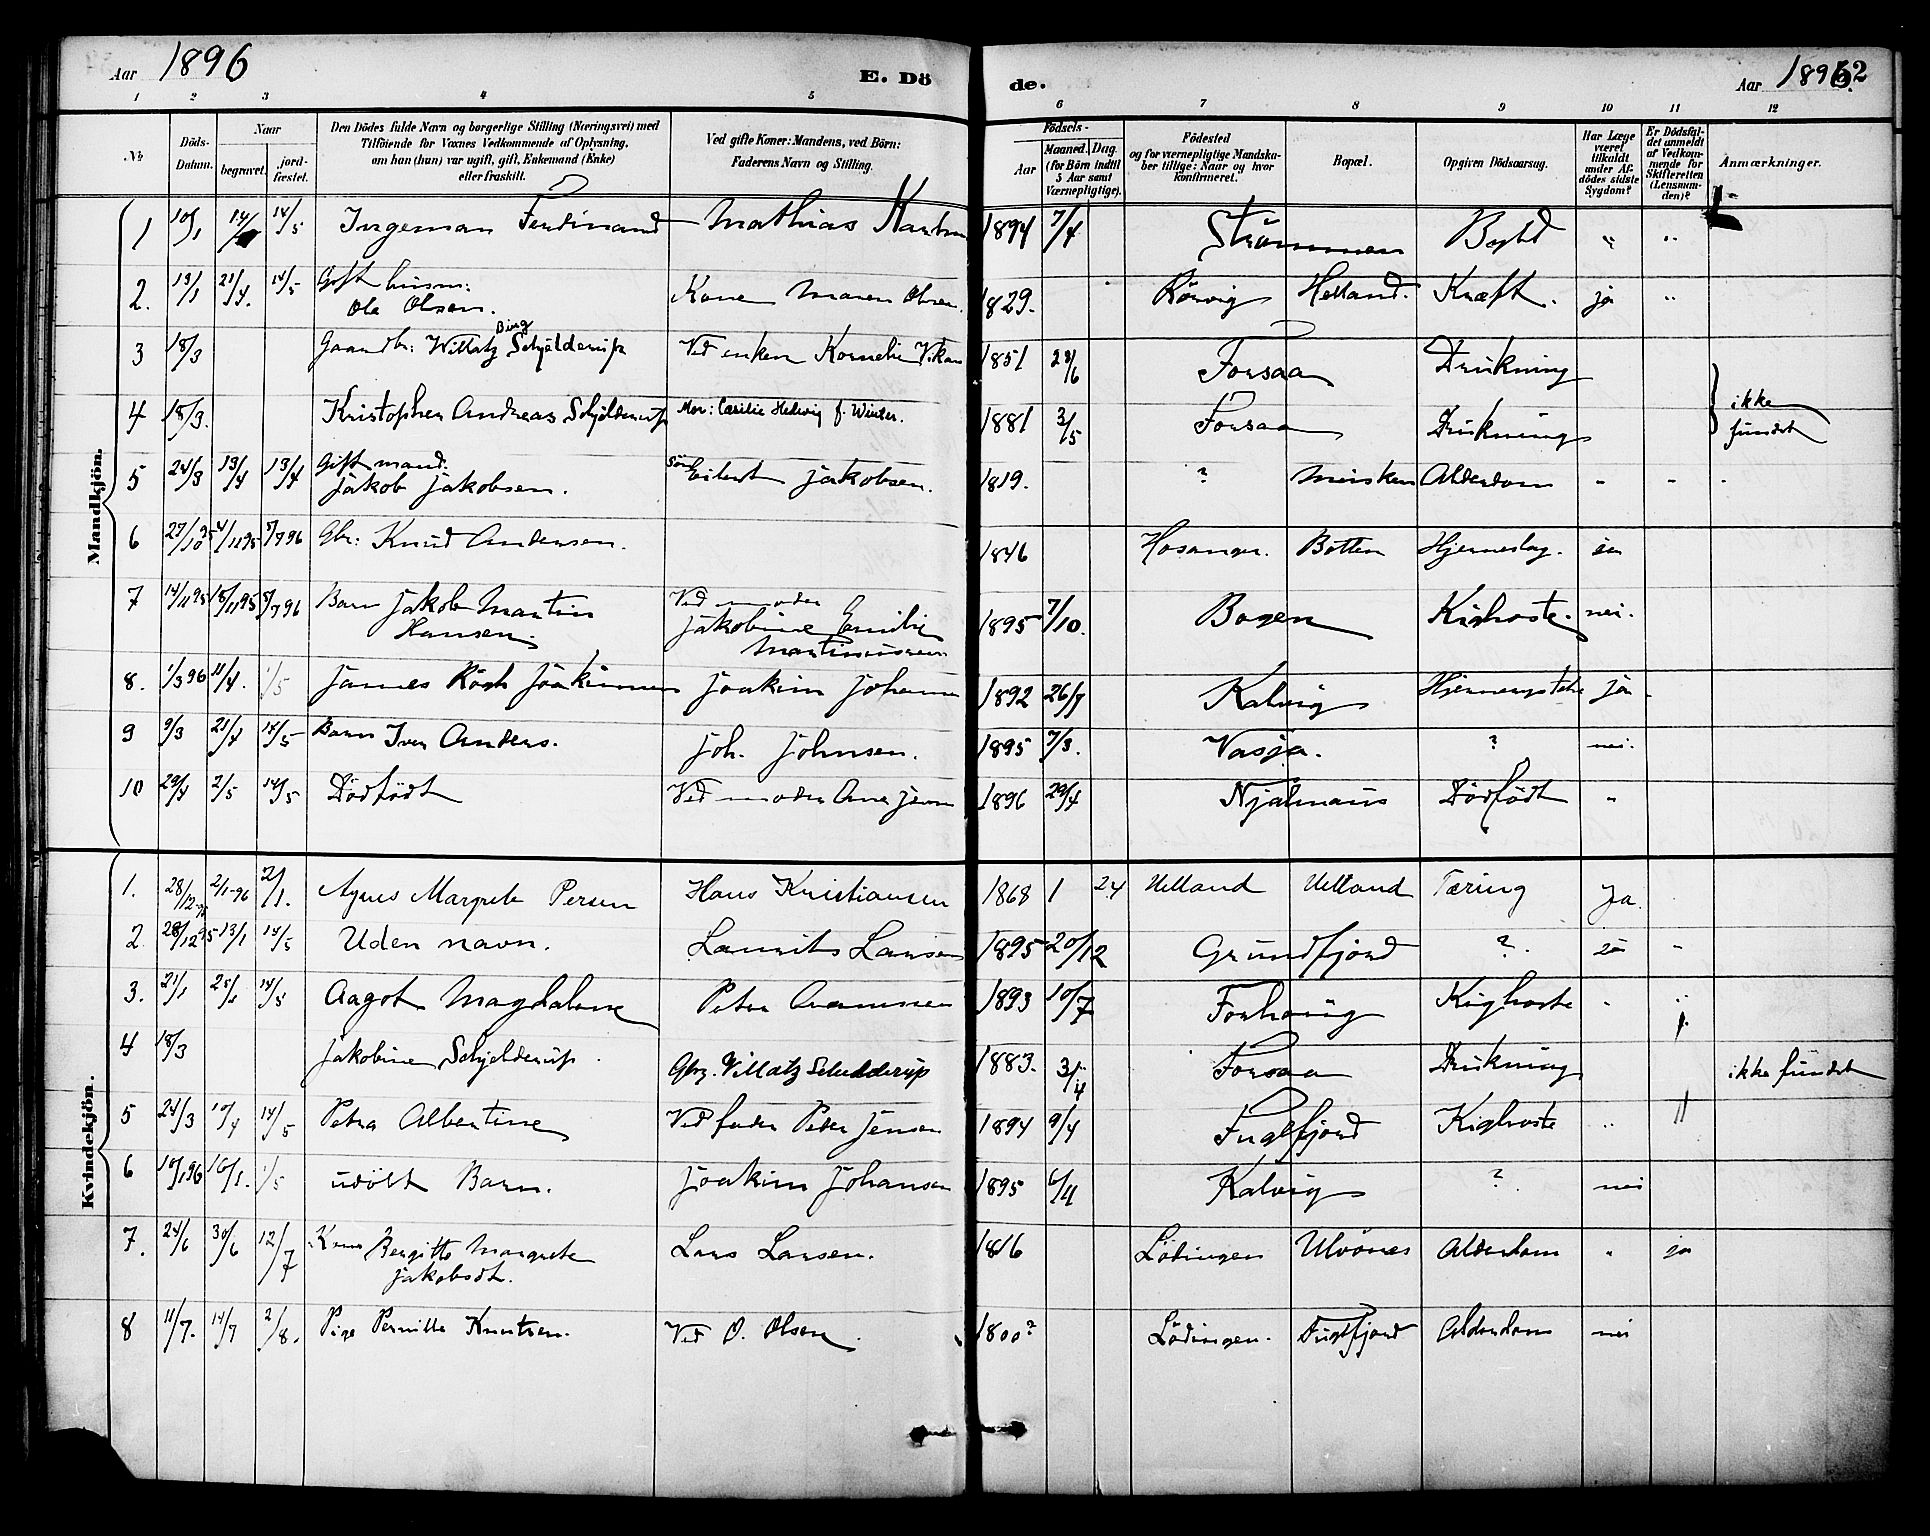 Aar 1896 E. Dö de. Aar 1896. 52
1 2 3 4 5 6 7 8 9 10 11 12
No
Döds-Datum.
Naar
begravet.
jordfæstet.
Den Dödes fulde Navn og borgerlige Stilling (Næringsvei) med
Tilföiende for Voxnes Vedkommende af Oplysning,
om han (hun) var ugift, gift, Enkemand (Enke)
eller fraskilt.
Ved gifte Koner: Mandens, ved Börn:
Faderens Navn og Stilling.
Födsels-
Aar
Maaned. Dag.
(for Börn indtil
5 Aar samt
Værnepligtige).
Födested
og for værnepligtige Mandskaber
tillige: Naar og hvor
konfirmeret.
Bopæl.
Opgiven Dödsaarsag.
Har Læge
været
tilkaldt
under Afdödes
sidste
Sygdom?
Er Dödsfaldet
anmeldt
af Vedkommende
for
Skifteretten
(Lensmanden)?
Anmærkninger.
Mandkjön.
1 10/1 14/5 Ingeman Ferdinand Mathias 1894 7/4 Strømmen Byld " "
2. 13/1 21/4. 14/5 Gift husm: Ole Olsen. Kone Maren Olsen. 1829. Rørvig Helland. Kræft. ja "
3 18/3 Gaardbr: Willatz Bing Schjelderup Ved enken Kornelie 1851 Forsaa Drukning
4 18/3. Kristopher Andreas Schjelderup Mor: Cæcilie Hedvig f. Winter. 1881 3/5 Forsaa Drukning ikke fundet
5 24/3 13/4 13/4 Gift mand. Jakob Jakobsen. Søn Eilert Jakobsen. 1819. ? Alderdom - - -
6 27/10 95 4/11 95 Gbr: Knud Andersen. 1846 Botten Hjerneslag.
7 14/11 95 18/11 95 Barn Jakob Martin Hansen. Ved moder Jakobine Emilie 1895 7/10. Bogen Kighoste. nei.
8. 1/3 96 11/4. 1/5 Joakim Johansen 1892 26/7 Kalvig ja
9 9/3 21/4 14/5 Barn Iver Anders. Joh. Johnsen. 1895 7/3. ? nei.
10 29/4 2/5 14/5 Dødfødt Ved moder Ane 1896 29/4 Dødfødt "
Kvindekjön.
1. 28/12-95 2/1-96 2/1. Agnes Margrete Persen Hans Kristiansen 1868 1 24 Helland Helland Tæring Ja.
2. 28/12 95 13/1 14/5 Uden navn. Laurits Larsen 1895 20/12 Grundfjord ? "
3. 21/1 25/1 14/5 Aagot Magdalene Peter 1893 10/7 Kighoste " "
4 18/3 Jakobine Schjelderup. Gbr. Villatz Schelderup 1883. 3/4 Forsaa Drukning ikke fundet
5 24/3 10/4 14/5 Petra Albertine Ved fader Peder Jensen 1894 9/4 Fuglfjord Kighoste " "
6 10/1 96 16/1. 1/5 udöbt Barn. Joakim Johansen 1895 Kalvig ? nei
7. 24/6 30/6 12/7 Kone Bergitte Margrete Jakobsdt. Lars Larsen. 1816 Lødingen Ulvönes Alderdom " ja
8 11/7. 14/7 2/8. Pige Pernille Knutsen. Ved O. Olsen. 1800? Lødingen. Fuglfjord Alderdom nei